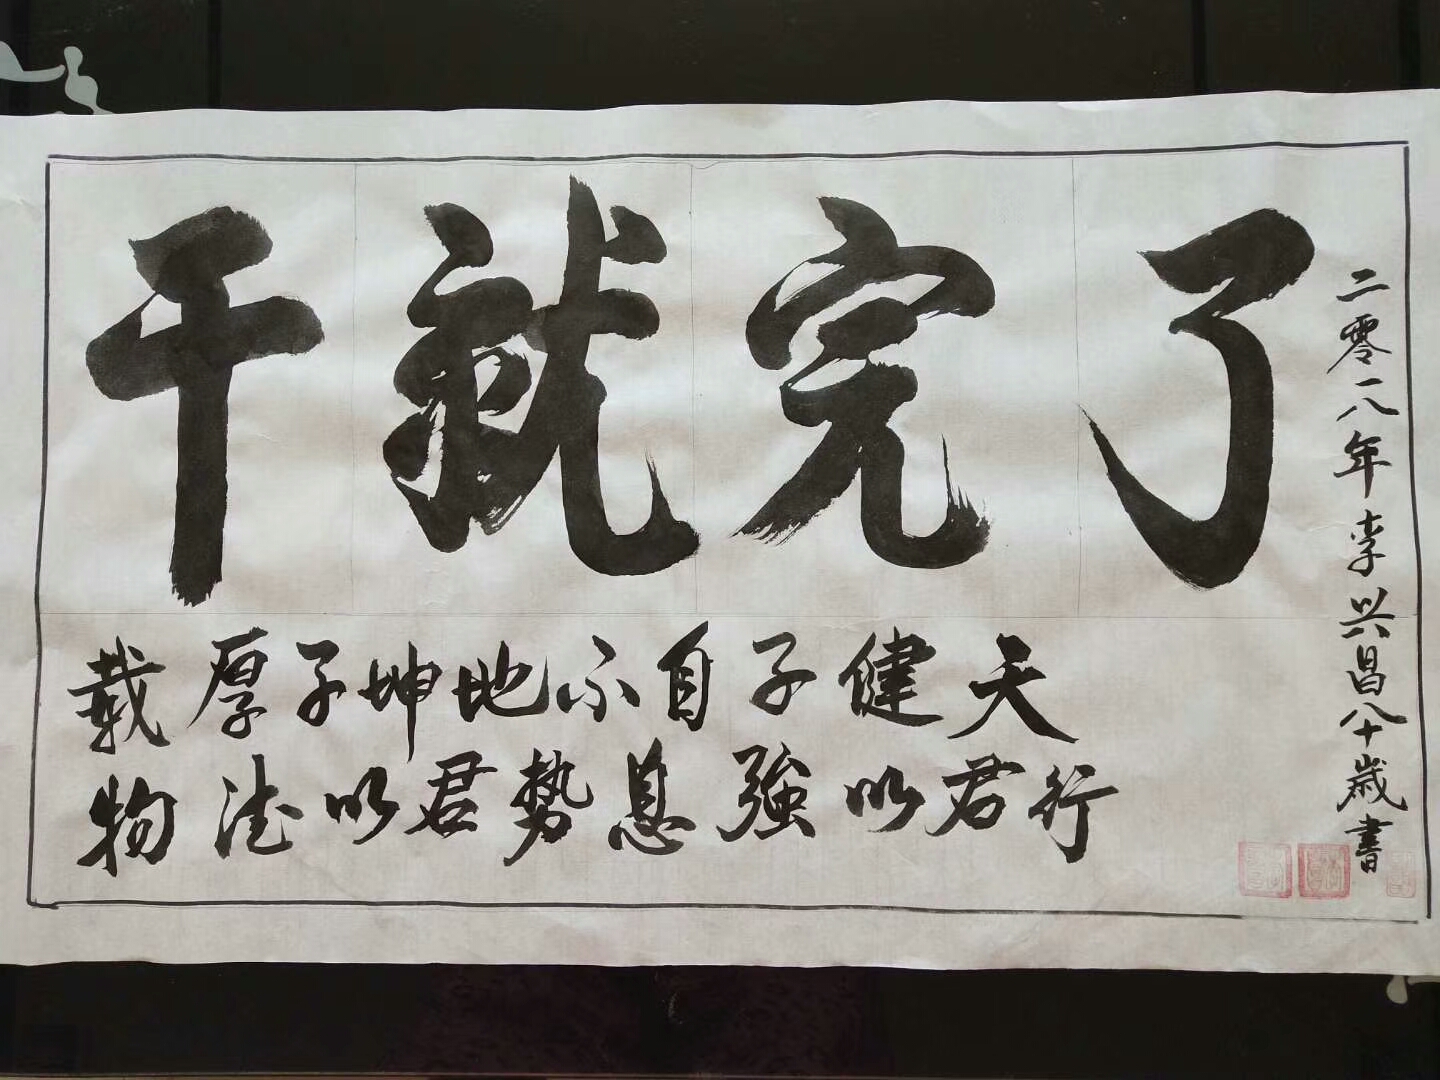 干就完了
天行
健君
子以
自強
不息
地勢
坤君
子以
厚德
載物
二零一八年李兴昌八十歲書